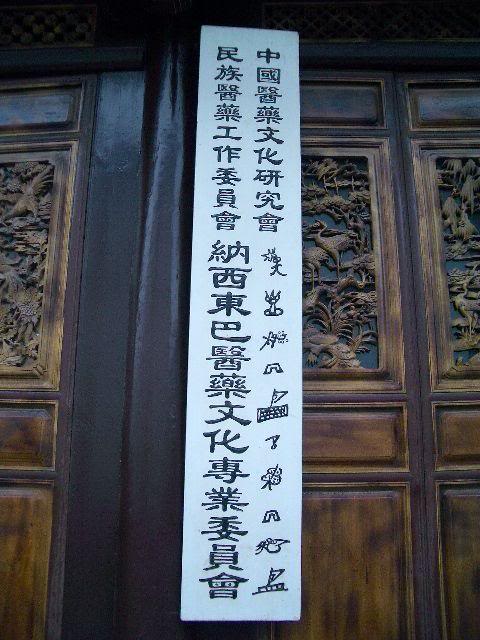 中國醫藥文化研究會
民族醫藥工作委員會
納西東巴醫藥文化專業委員會